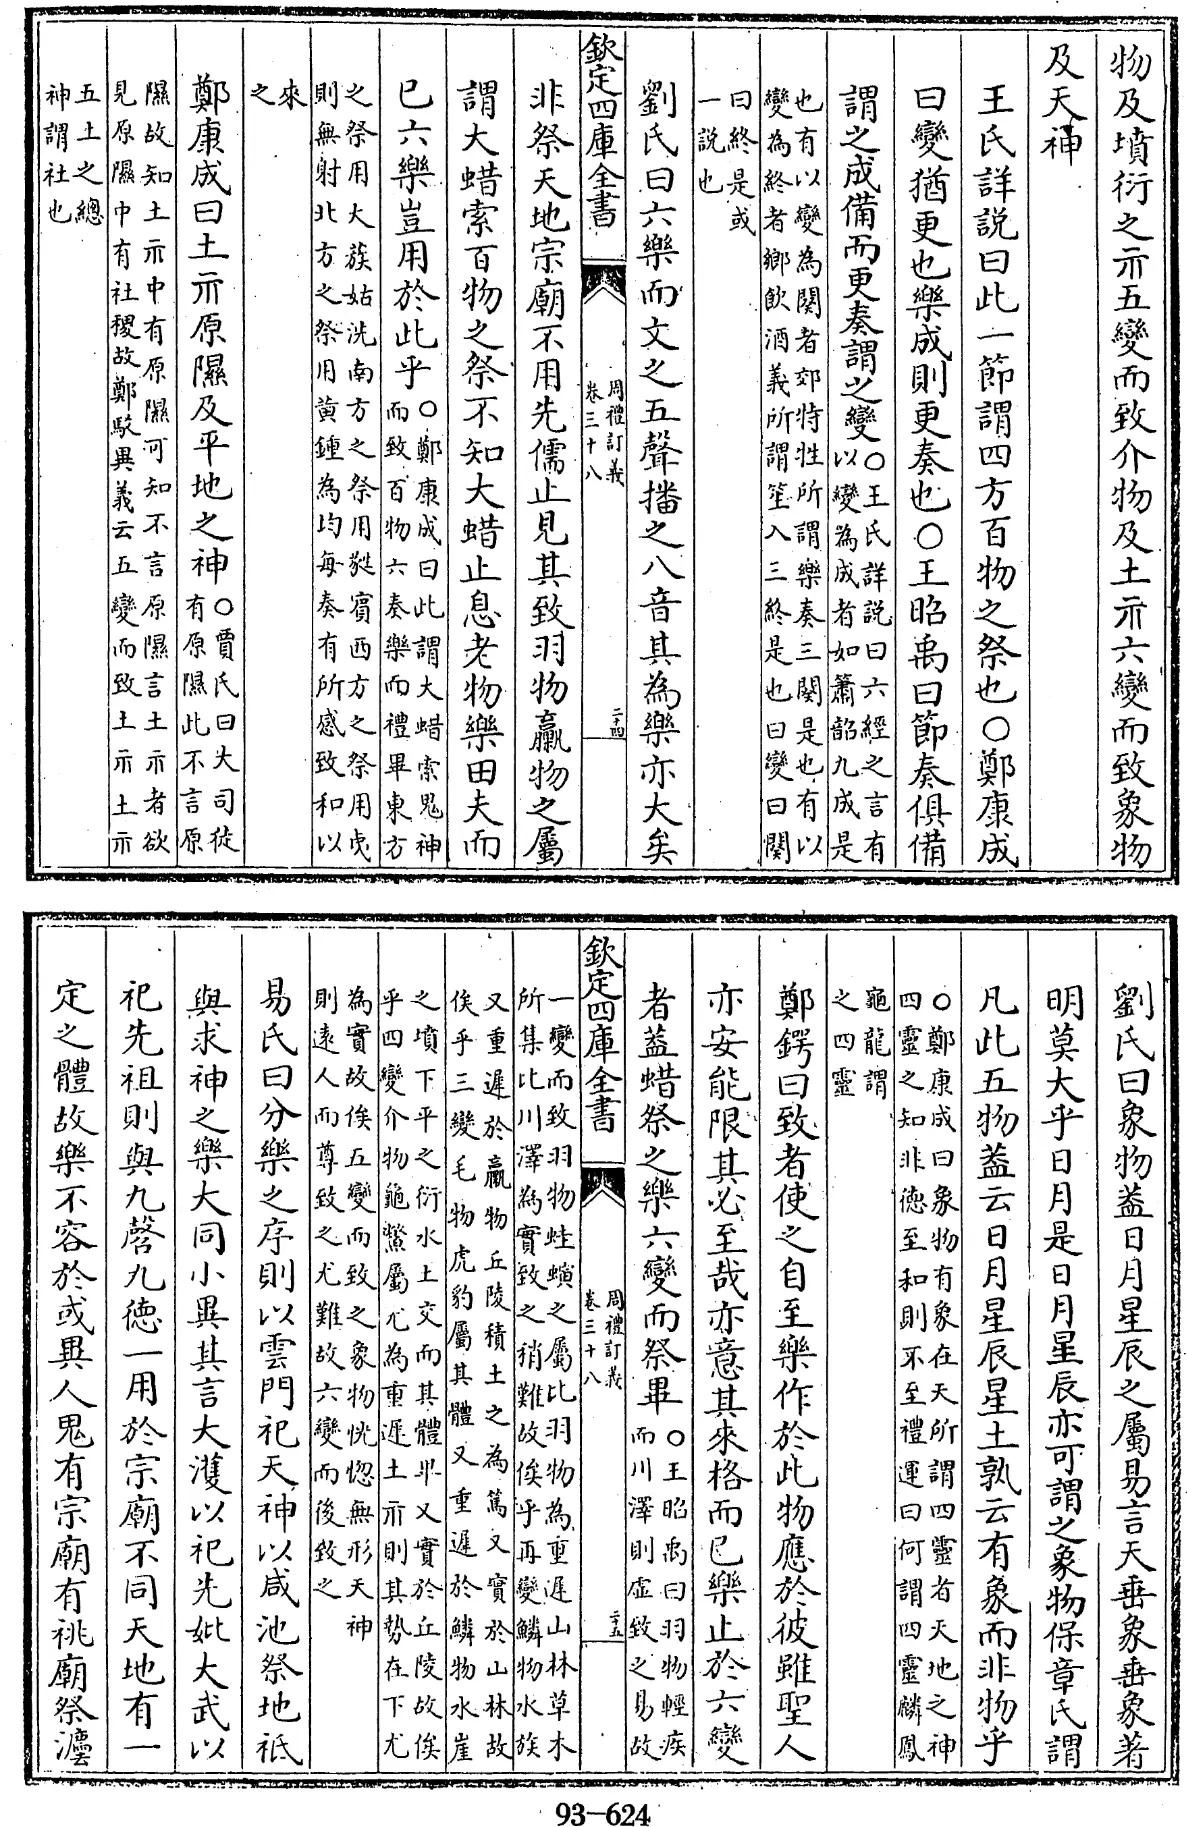 物及墳衍之示五變而致介物及土示六變而致象物
及天神
王氏詳説曰此一節謂四方百物之祭也○鄭康成
曰變猶更也樂成則更奏也○王昭禹曰節奏俱備
謂之成備而更奏謂之變○王氏詳説曰六經之言有
以變為成者如簫韶九成是
也有以變為闋者郊特牲所謂樂奏三闋是也有以
變為終者鄉飲酒義所謂笙入三終是也曰變曰闋
曰終是或
一説也
劉氏曰六樂而文之五聲播之八音其為樂亦大矣
欽定四庫全書
周禮訂義
卷三十八
二十四
非祭天地宗廟不用先儒止見其致羽物臝物之屬
謂大蜡索百物之祭不知大蜡止息老物樂田夫而
已六樂豈用於此乎○鄭康成曰此謂大蜡索鬼神
而致百物六奏樂而禮畢東方
之祭用大蔟姑洗南方之祭用蕤賓西方之祭用夷
則無射北方之祭用黄鍾為均每奏有所感致和以
來
之
鄭康成曰土示原隰及平地之神○賈氏曰大司徒
有原隰此不言原
隰故知土示中有原隰可知不言原隰言土示者欲
見原隰中有社稷故鄭駮異義云五變而致土示土示
五土之總
神謂社也
劉氏曰象物蓋日月星辰之屬易言天垂象垂象著
明莫大乎日月是日月星辰亦可謂之象物保章氏謂
凡此五物蓋云日月星辰星土孰云有象而非物乎
○鄭康成曰象物有象在天所謂四靈者天地之神
四靈之知非徳至和則不至禮運曰何謂四靈麟鳳
龜龍謂
之四靈
鄭鍔曰致者使之自至樂作於此物應於彼雖聖人
亦安能限其必至哉亦意其來格而已樂止於六變
者蓋蜡祭之樂六變而祭畢○王昭禹曰羽物輕疾
而川澤則虛致之易故
一變而致羽物蛙螾之屬比羽物為重遲山林草木
所集比川澤為實致之稍難故俟乎再變鱗物水族
欽定四庫全書
周禮訂義
卷三十八
二十五
又重遲於臝物丘陵積土之為蔿又實於山林故
俟乎三變毛物虎豹屬其體又重遲於鱗物水崖
之墳下平之衍水土交而其體卑又實於丘陵故俟
乎四變介物龜鱉屬尤為重遲土示則其勢在下尤
為實故俟五變而致之象物恍惚無形天神
則逺人而尊致之尤難故六變而後致之
易氏曰分樂之序則以雲門祀天神以咸池祭地祇
與求神之樂大同小異其言大濩以祀先妣大武以
祀先祖則與九磬九徳一用於宗廟不同天地有一
定之體故樂不容於或異人鬼有宗廟有祧廟祭瀍
93-624